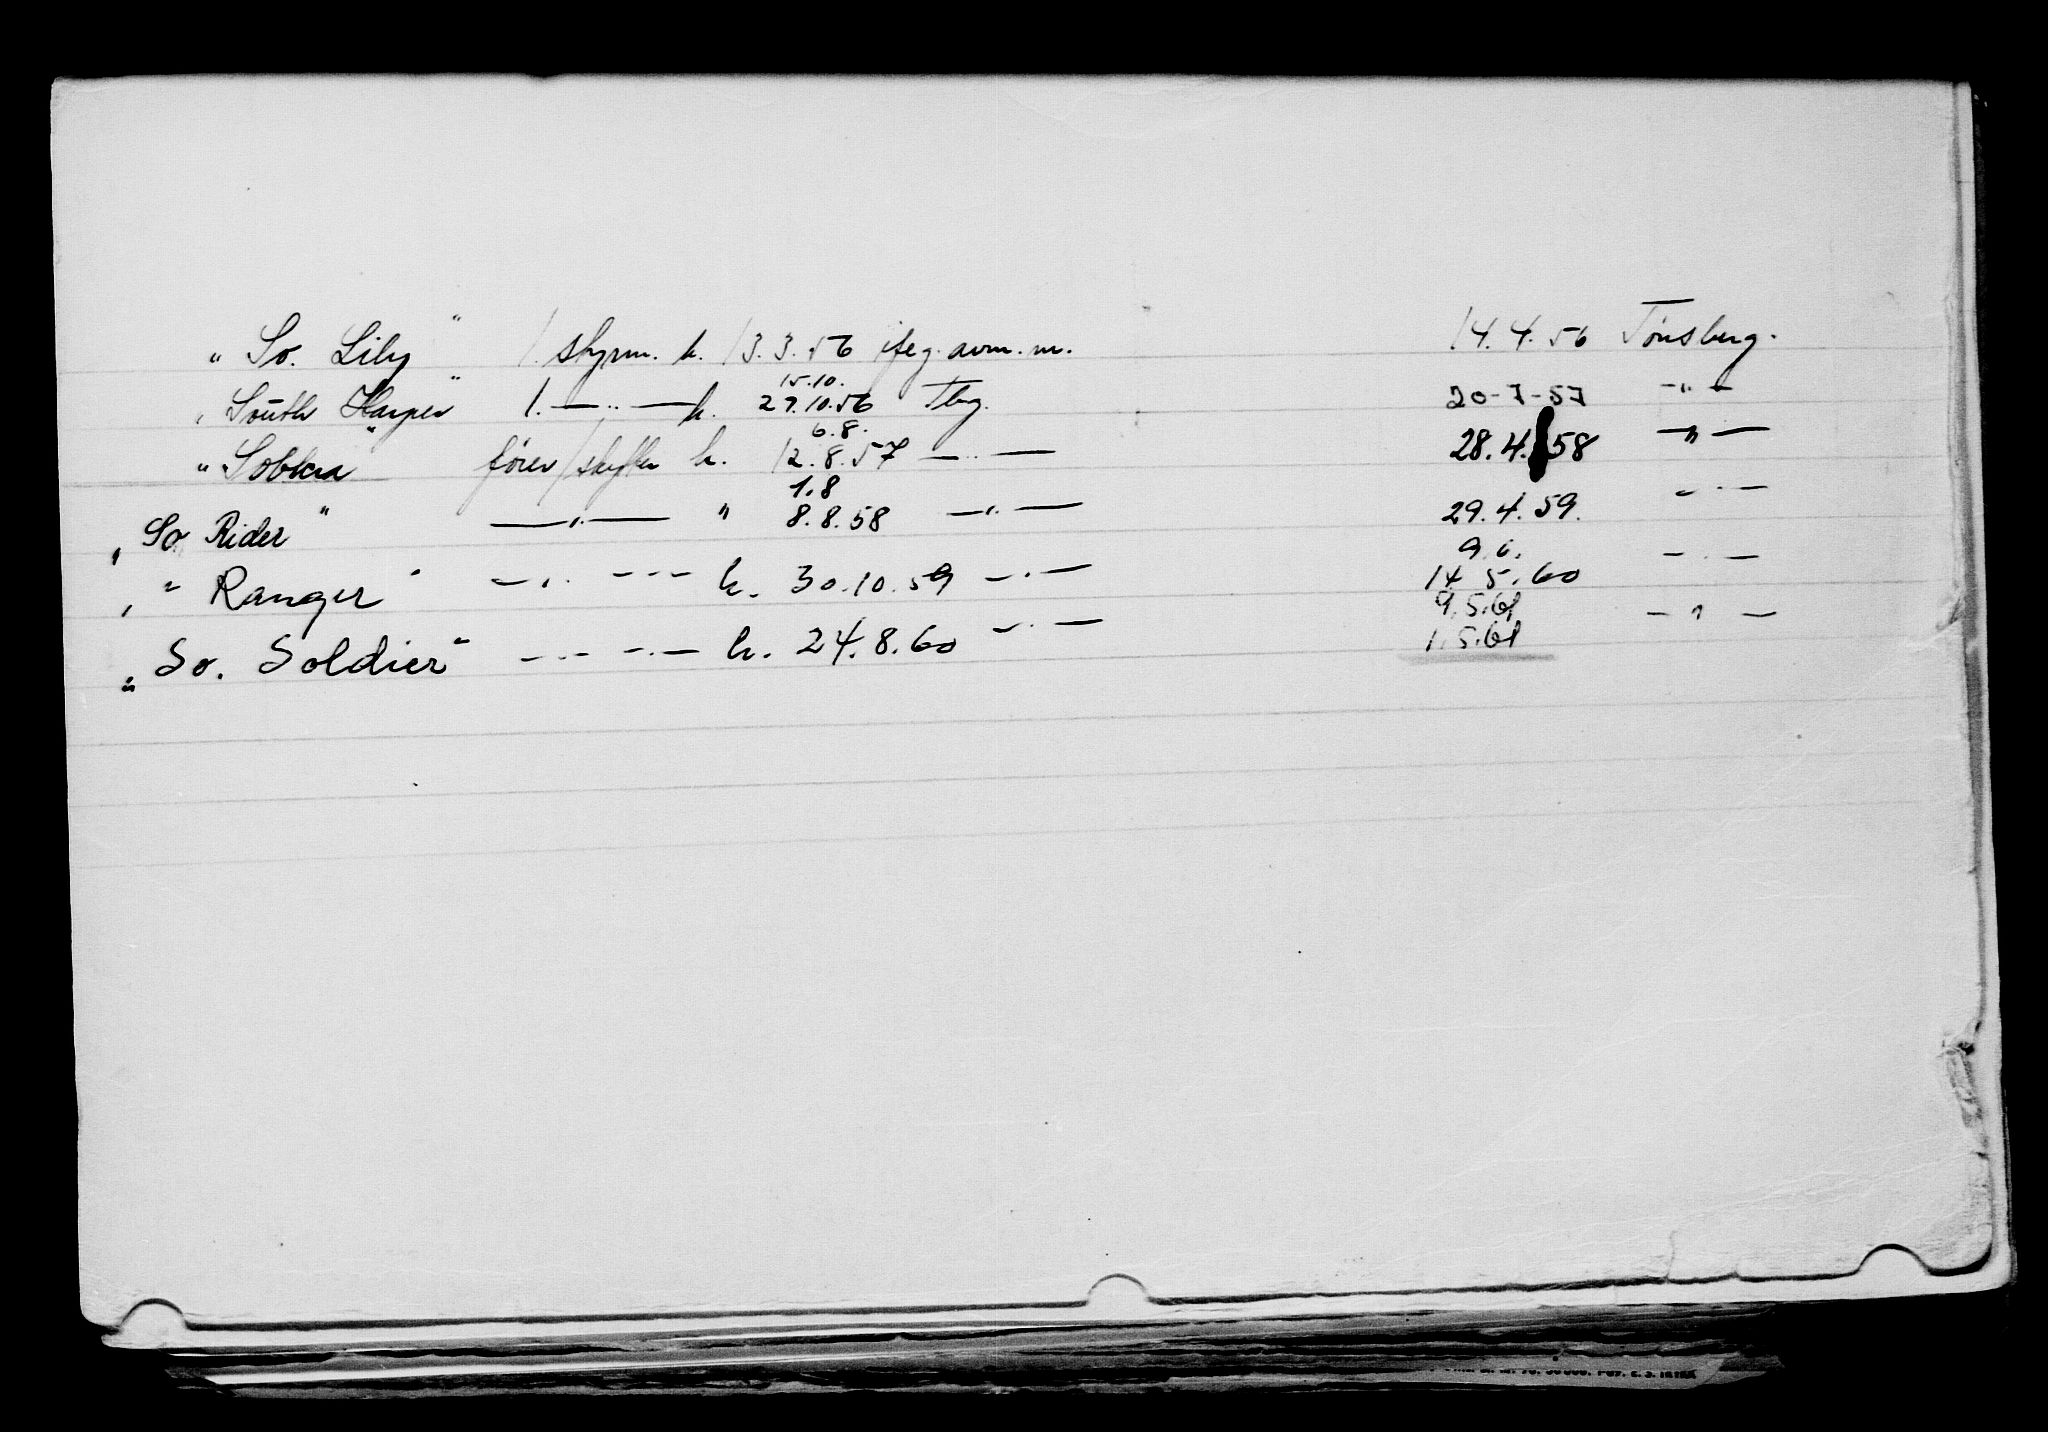 "So. Lily" 1. styrm. h. 13.3.56 ifeg. avm. m. 14.4.56 Tønsberg.
15.10.
"South Harper" 1. —"— h. 27.10.56 Tbg. 20-7-57 —"—
6.8.
"Sobkra" fører/skytter h. 12.8.57 —"— 28.4.58 —"—
1.8
"So Rider" —"— " 8.8.58 —"— 29.4.59. —"—
9.6.
" " Ranger" —"— —"— h. 30.10.59 —"— 14.5.60 —"—
9.5.61
"So. Soldier" —"— —"— h. 24.8.60 —"— 1.5.61 —"—